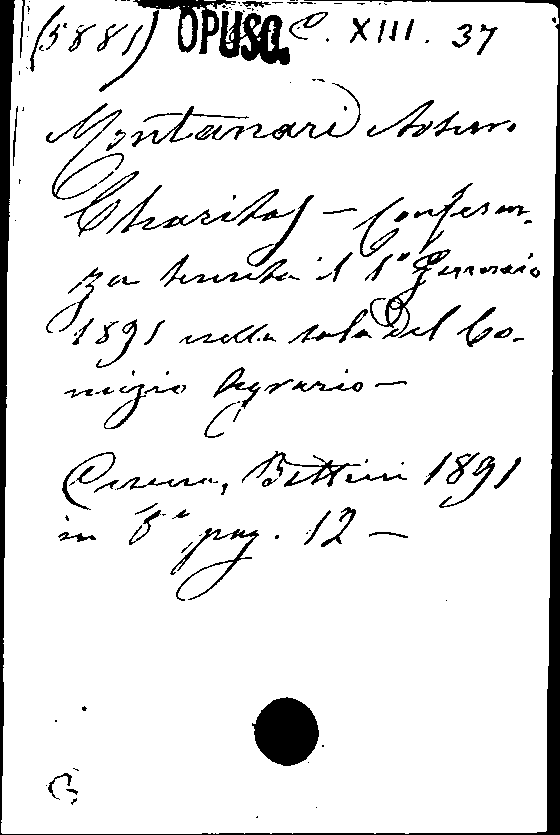 (5881) OPUSC. C. XIII. 37
Montanari Arturo
Charitas - Conferen-
za tenuta il 1° Gennaio
1891 nella sala del Co-
mizio Agrario -
Cesena, Bettini 1891
in 8° pag. 12 -